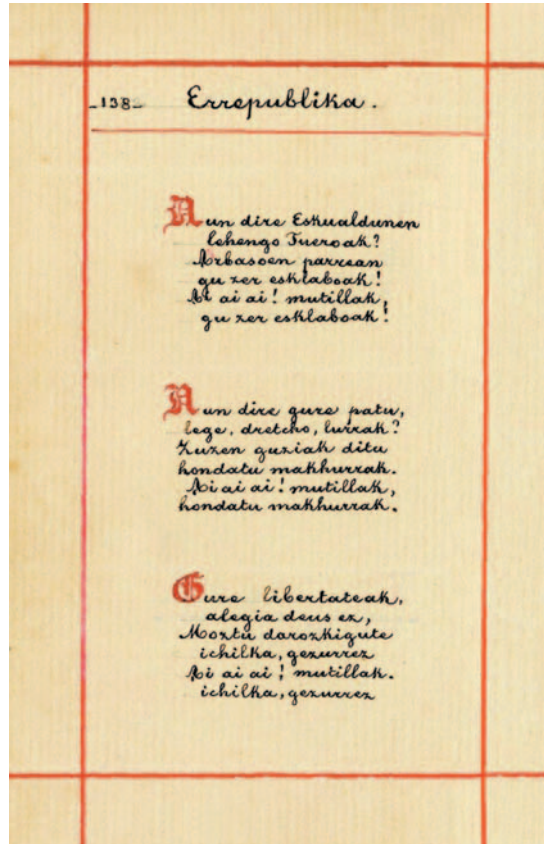 -138- Errepublika.
Nun dire Eskualdunen
lehengo Fueroak?
Arbasoen parrean
gu zer esklaboak!
Ai ai ai! mutillak,
gu zer esklaboak!
Nun dire gure patu,
lege, dretcho, lurrak?
Zuzen guziak ditu
hondatu makhurrak.
Ai ai ai! mutillak,
hondatu makhurrak.
Gure libertateak,
alegia deus ez,
Moztu darozkigute
ichilka, gezurrez
Ai ai ai! mutillak.
ichilka, gezurrez